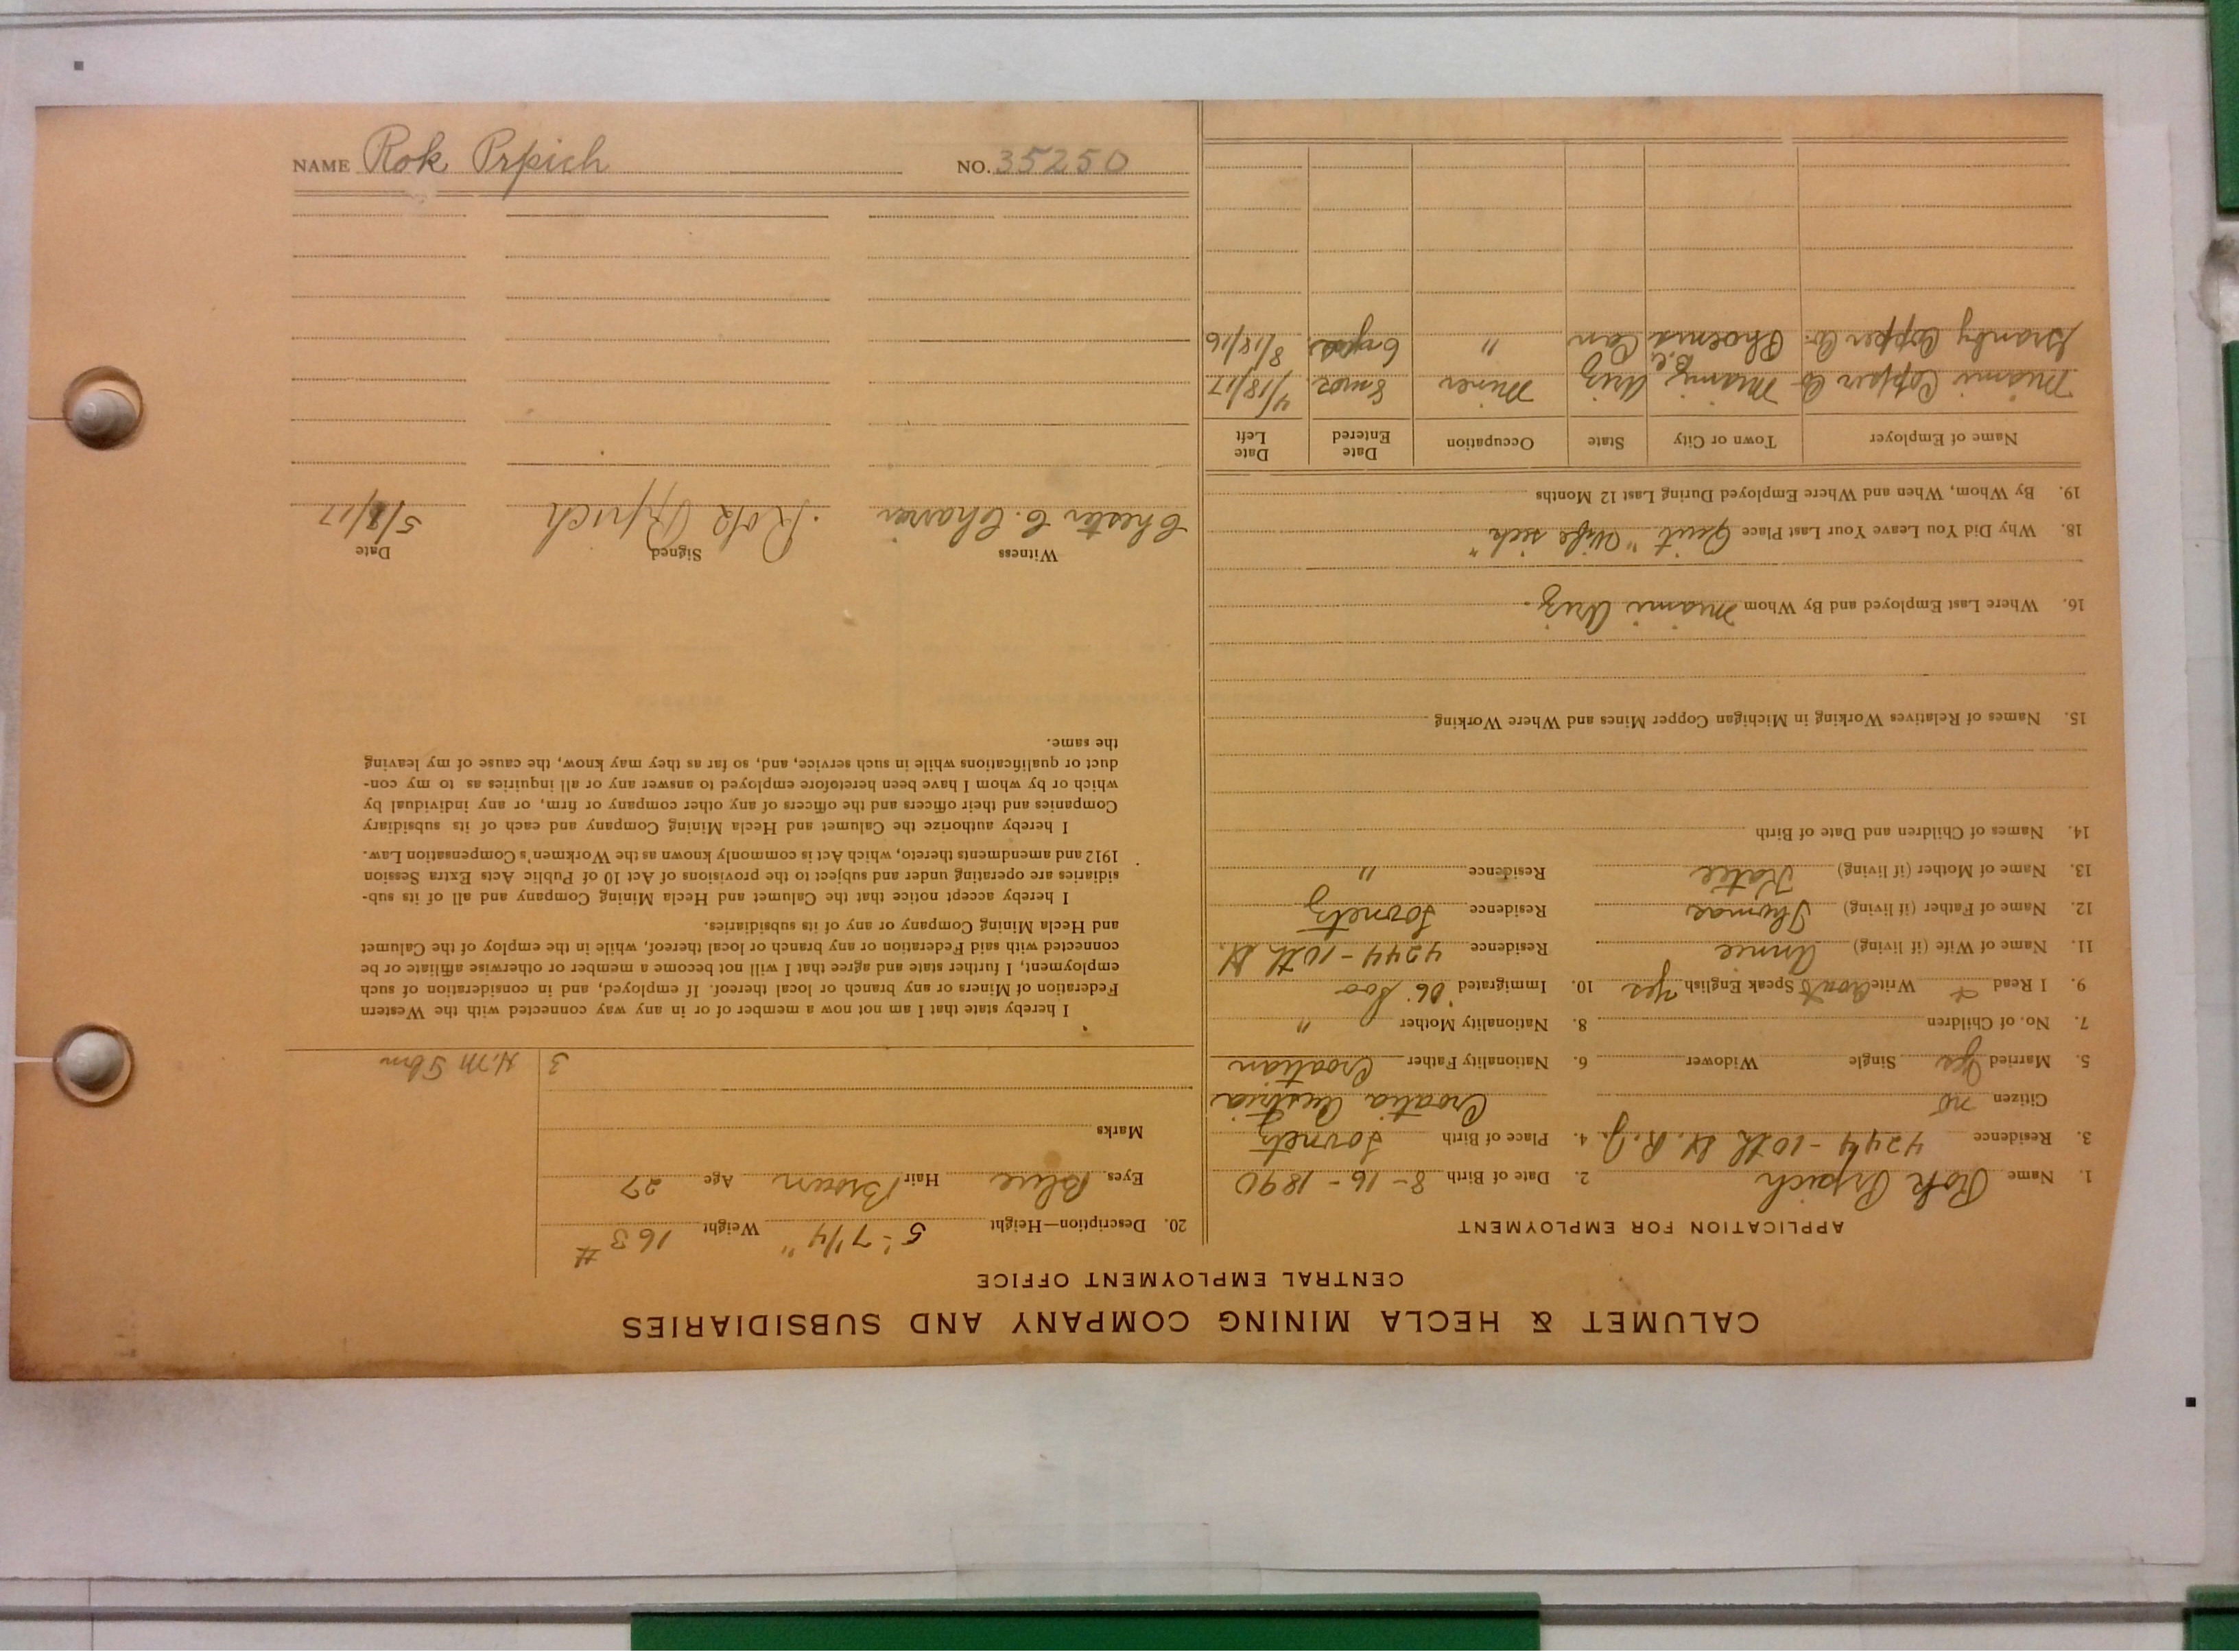 NAME Rok Prpich NO. 35250
CALUMET & HECLA MINING COMPANY AND SUBSIDIARIES
CENTRAL EMPLOYMENT OFFICE
APPLICATION FOR EMPLOYMENT
1. Name Rok Prpich 2. Date of Birth 8-16-1890
3. Residence 4244-10th St. R.J. 4. Place of Birth
Citizen no Croatia Austria
5. Married Yes Single Widower 6. Nationality Father Croatian
7. No. of Children 8. Nationality Mother "
9. I Read & Write Croat Speak English Yes 10. Immigrated '06 Soo
11. Name of Wife (if living) Annie Residence 4244-10th St.
12. Name of Father (if living) Thomas Residence
13. Name of Mother (if living) Katie Residence "
14. Names of Children and Date of Birth
15. Names of Relatives Working in Michigan Copper Mines and Where Working
16. Where Last Employed and By Whom Miami Ariz.
18. Why Did You Leave Your Last Place Quit "Wife sick"
19. By Whom, When and Where Employed During Last 12 Months
Name of Employer Town or City State Occupation Date Entered Date Left
Miami Copper Co Miami Ariz Miner 8 mos 4/18/17
Granby Copper Co. Phoenix B.C. Can " 6 yrs 8/18/16
20. Description—Height 5'-7 1/4" Weight 163 #
Eyes Blue Hair Brown Age 27
Marks
3 H.M
I hereby state that I am not now a member of or in any way connected with the Western
Federation of Miners or any branch or local thereof. If employed, and in consideration of such
employment, I further state and agree that I will not become a member or otherwise affiliate or be
connected with said Federation or any branch or local thereof, while in the employ of the Calumet
and Hecla Mining Company or any of its subsidiaries.
I hereby accept notice that the Calumet and Hecla Mining Company and all of its sub-
sidiaries are operating under and subject to the provisions of Act 10 of Public Acts Extra Session
1912 and amendments thereto, which Act is commonly known as the Workmen's Compensation Law.
I hereby authorize the Calumet and Hecla Mining Company and each of its subsidiary
Companies and their officers and the officers of any other company or firm, or any individual by
which or by whom I have been heretofore employed to answer any or all inquiries as to my con-
duct or qualifications while in such service, and, so far as they may know, the cause of my leaving
the same.
Witness Signed Date
Chester C. Rok Prpich 5/8/17